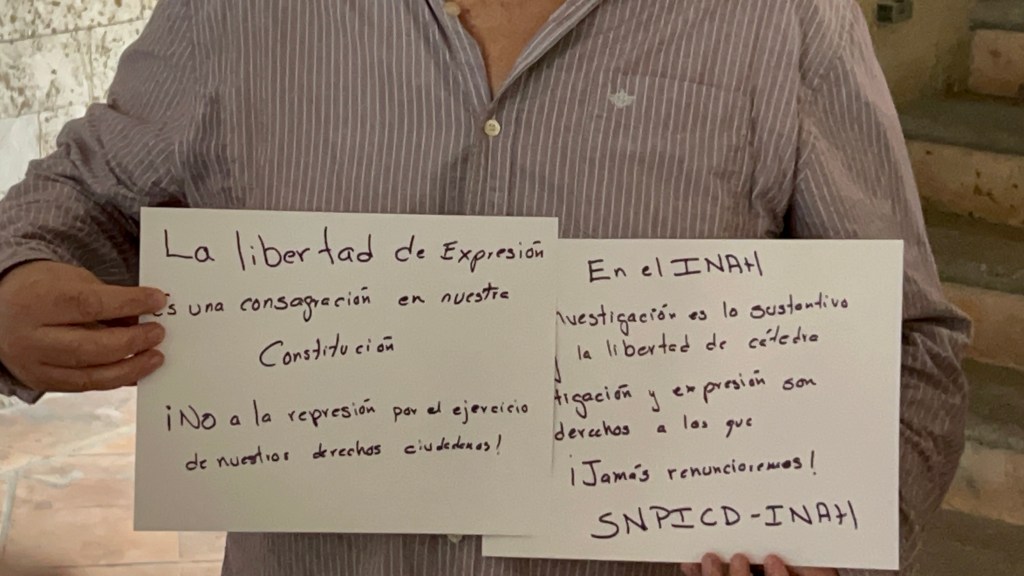 La libertad de Expresión
es una consagración en nuestra
Constitución
¡No a la represión por el ejercicio
de nuestros derechos ciudadanos!
En el INAH
nvestigación es lo sustantivo
la libertad de cátedra
tigación y expresión son
derechos a los que
¡Jamás renunciaremos!
SNPICD-INAH